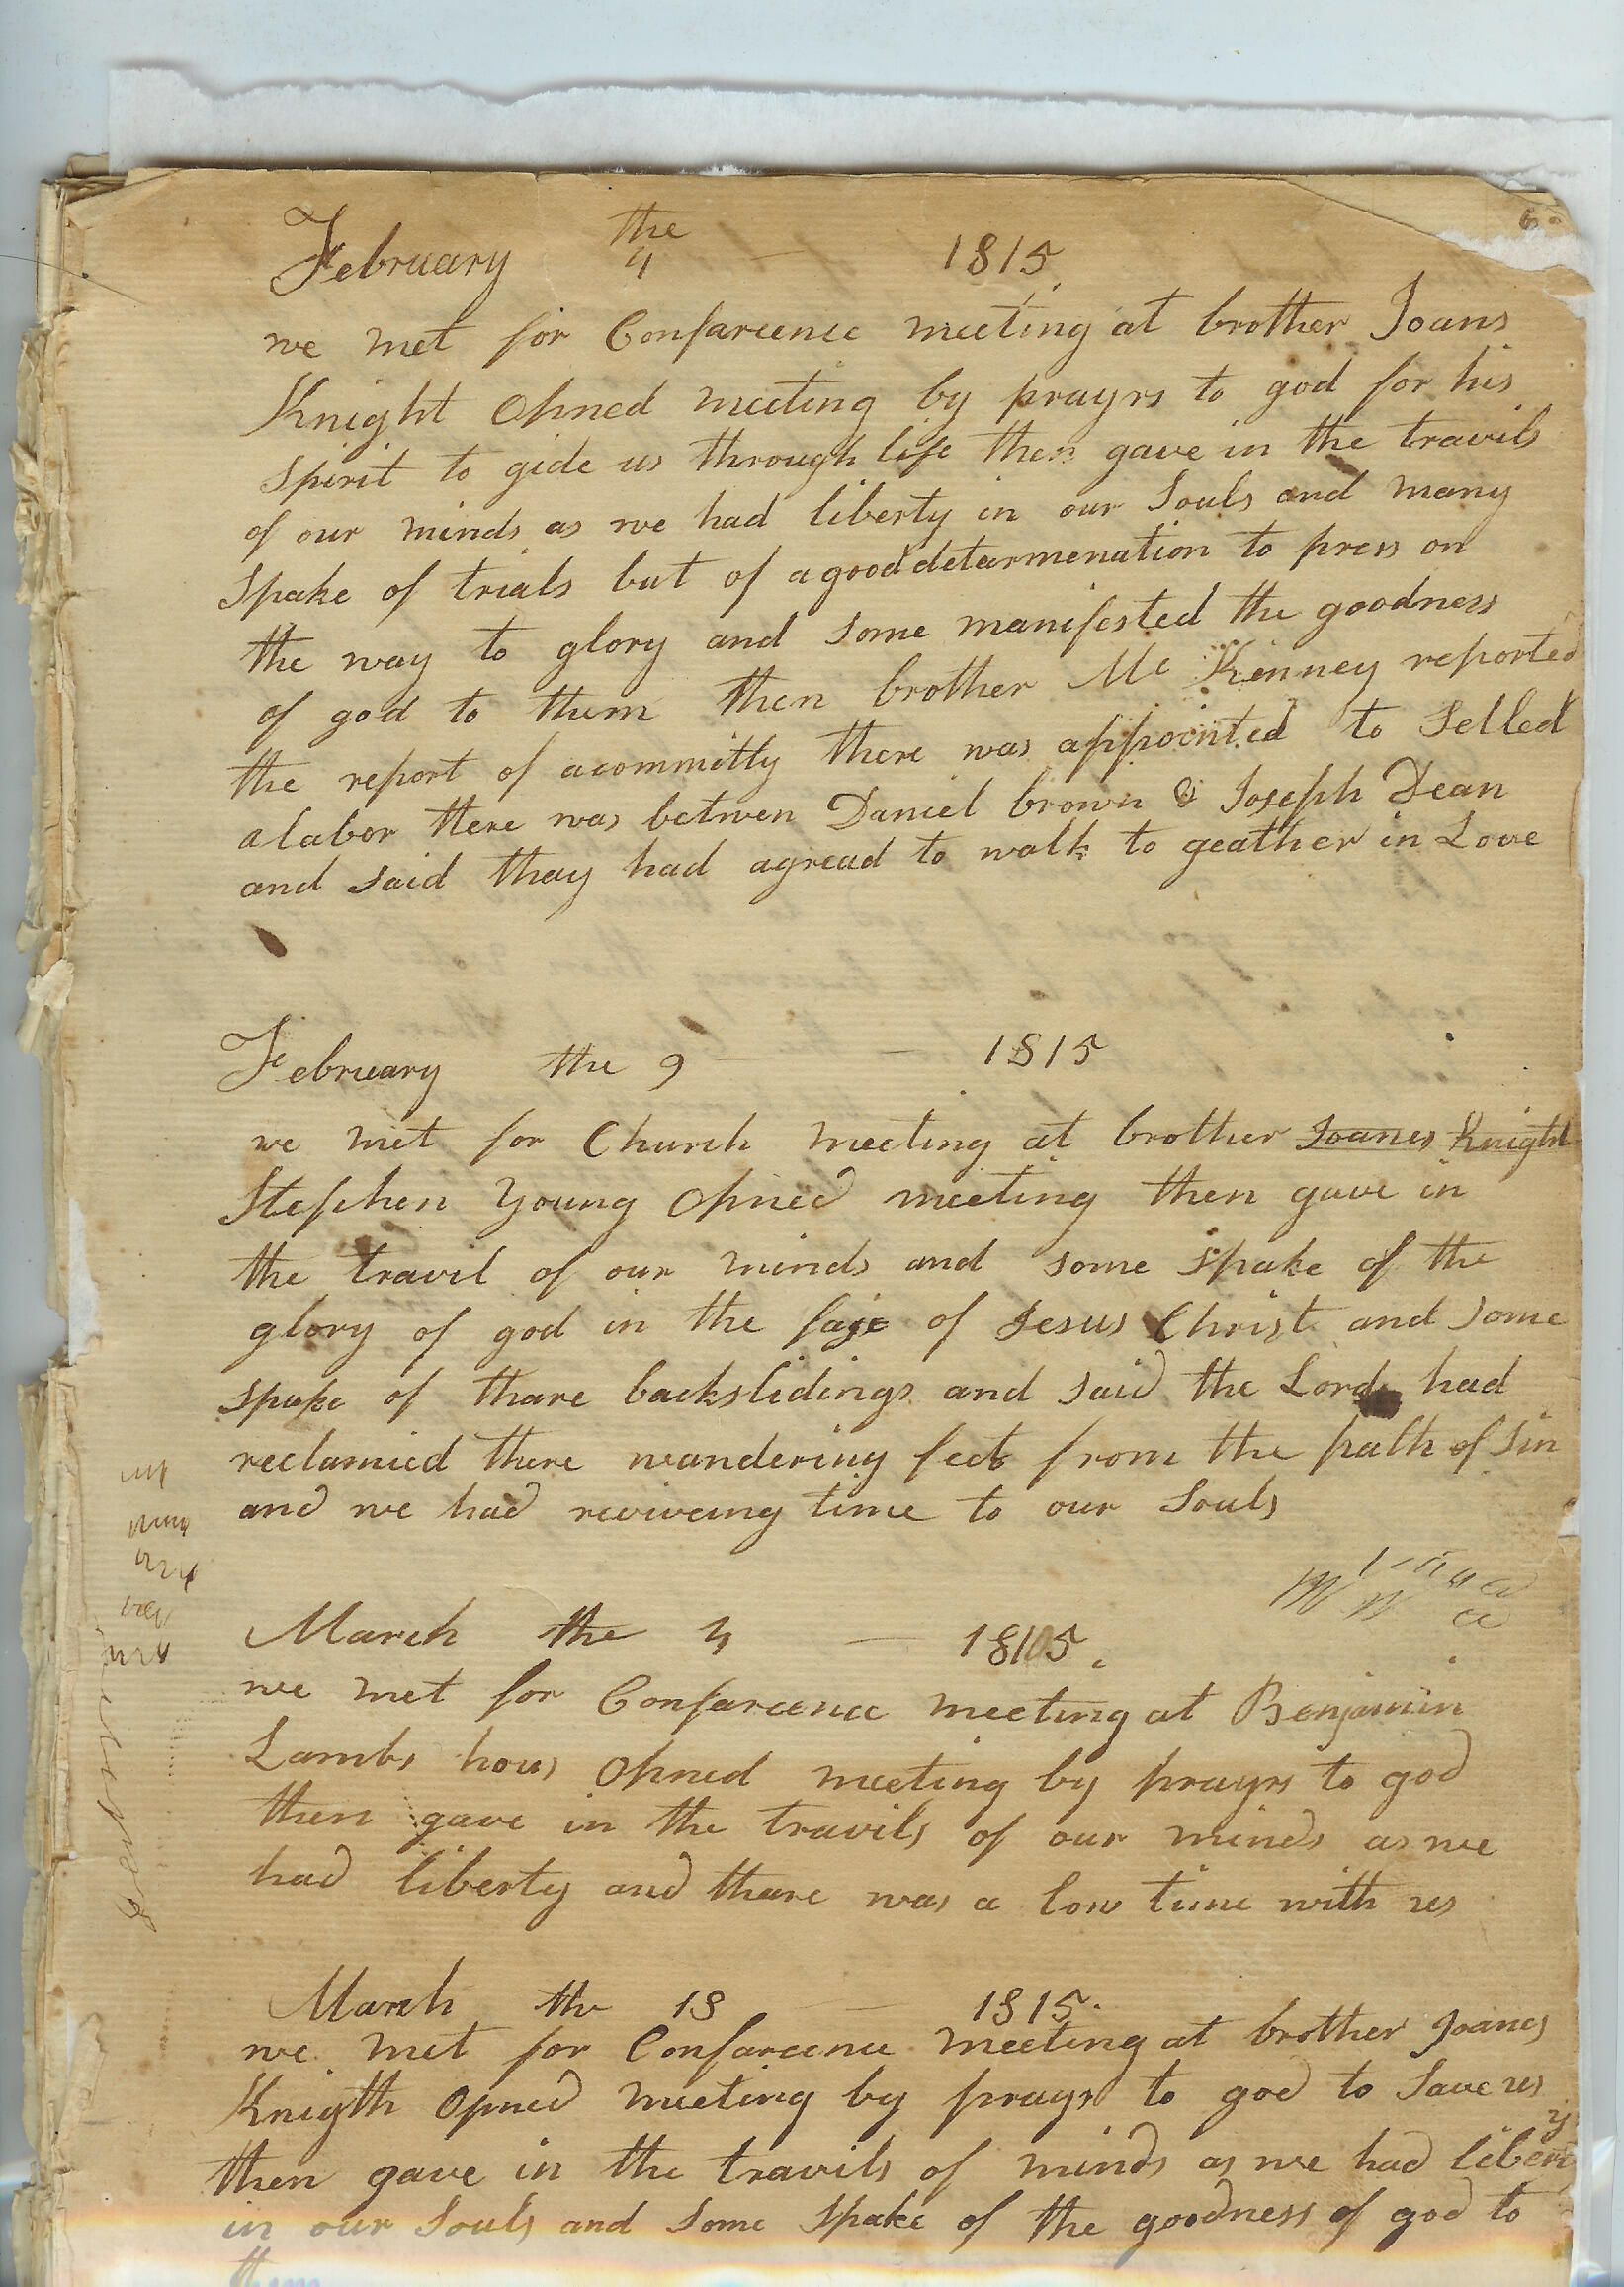 February the 4 — 1815.
we met for Confarcence meeting at brother Joans
Knight Opned meeting by prayrs to god for his
spirit to gide us through life then gave in the travils
of our minds as we had liberty in our Souls and many
Spake of trials but of a good detarmenation to press on
the way to glory and some manifested the goodness
of god to them then brother Mc Kenney reported
the report of a committy there was appointed to Selled
a labor there was betwen Daniel brown & Joseph Dean
and said thay had agread to walk to geather in Love
February the 9 — — 1815
we met for Church meeting at brother Joanes Knight
Stephen Young Opned meeting then gave in
the travil of our minds and some spake of the
glory of god in the face of Jesus Christ and some
spake of thare backslidings and said the Lord had
reclamied there wandering feet from the path of Sin
and we had reviveing time to our Souls
March the 4 — 1815.
we met for Confarcence meeting at Benjamin
Lambs hous Opned meeting by prayrs to god
then gave in the travils of our minds as we
had liberty and thare was a low time with us
March the 18 — 1815.
we met for Confarcence meeting at brother Joanes
Knigth Opned meeting by prayr to god to Save us
then gave in the travils of minds as we had liberty
in our Souls and some spake of the goodness of god to
them